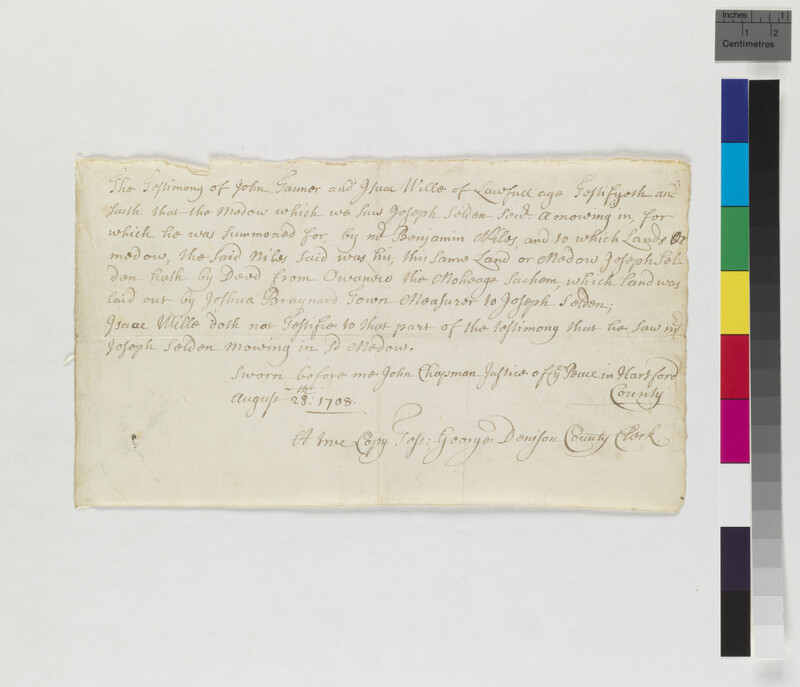 Inches 1
1 2
Centimetres
The Testimony of John Tanner and Isaac Wille of Lawfull age Testifyeth and
saith that the Medow which we saw Joseph Selden Senr. a mowing in, for
which he was summoned for, by mr. Benjamin Niles, and to which Lands Or
medow, the said Niles said was his, this same Land or Medow Joseph Sel-
den hath by Deed from Owaneco the Moheage Sachem which land was
laid out by Joshua Braynard Town Measurer to Joseph Selden;
Isaac Wille doth not Testifie to that part of the testimony that he saw mr
Joseph Selden mowing in sd Medow.
Sworn before me John Chapman Justice of ye Peace in Hartford
August 28th: 1708. County
A true Copy Test: George Denison County Clerk